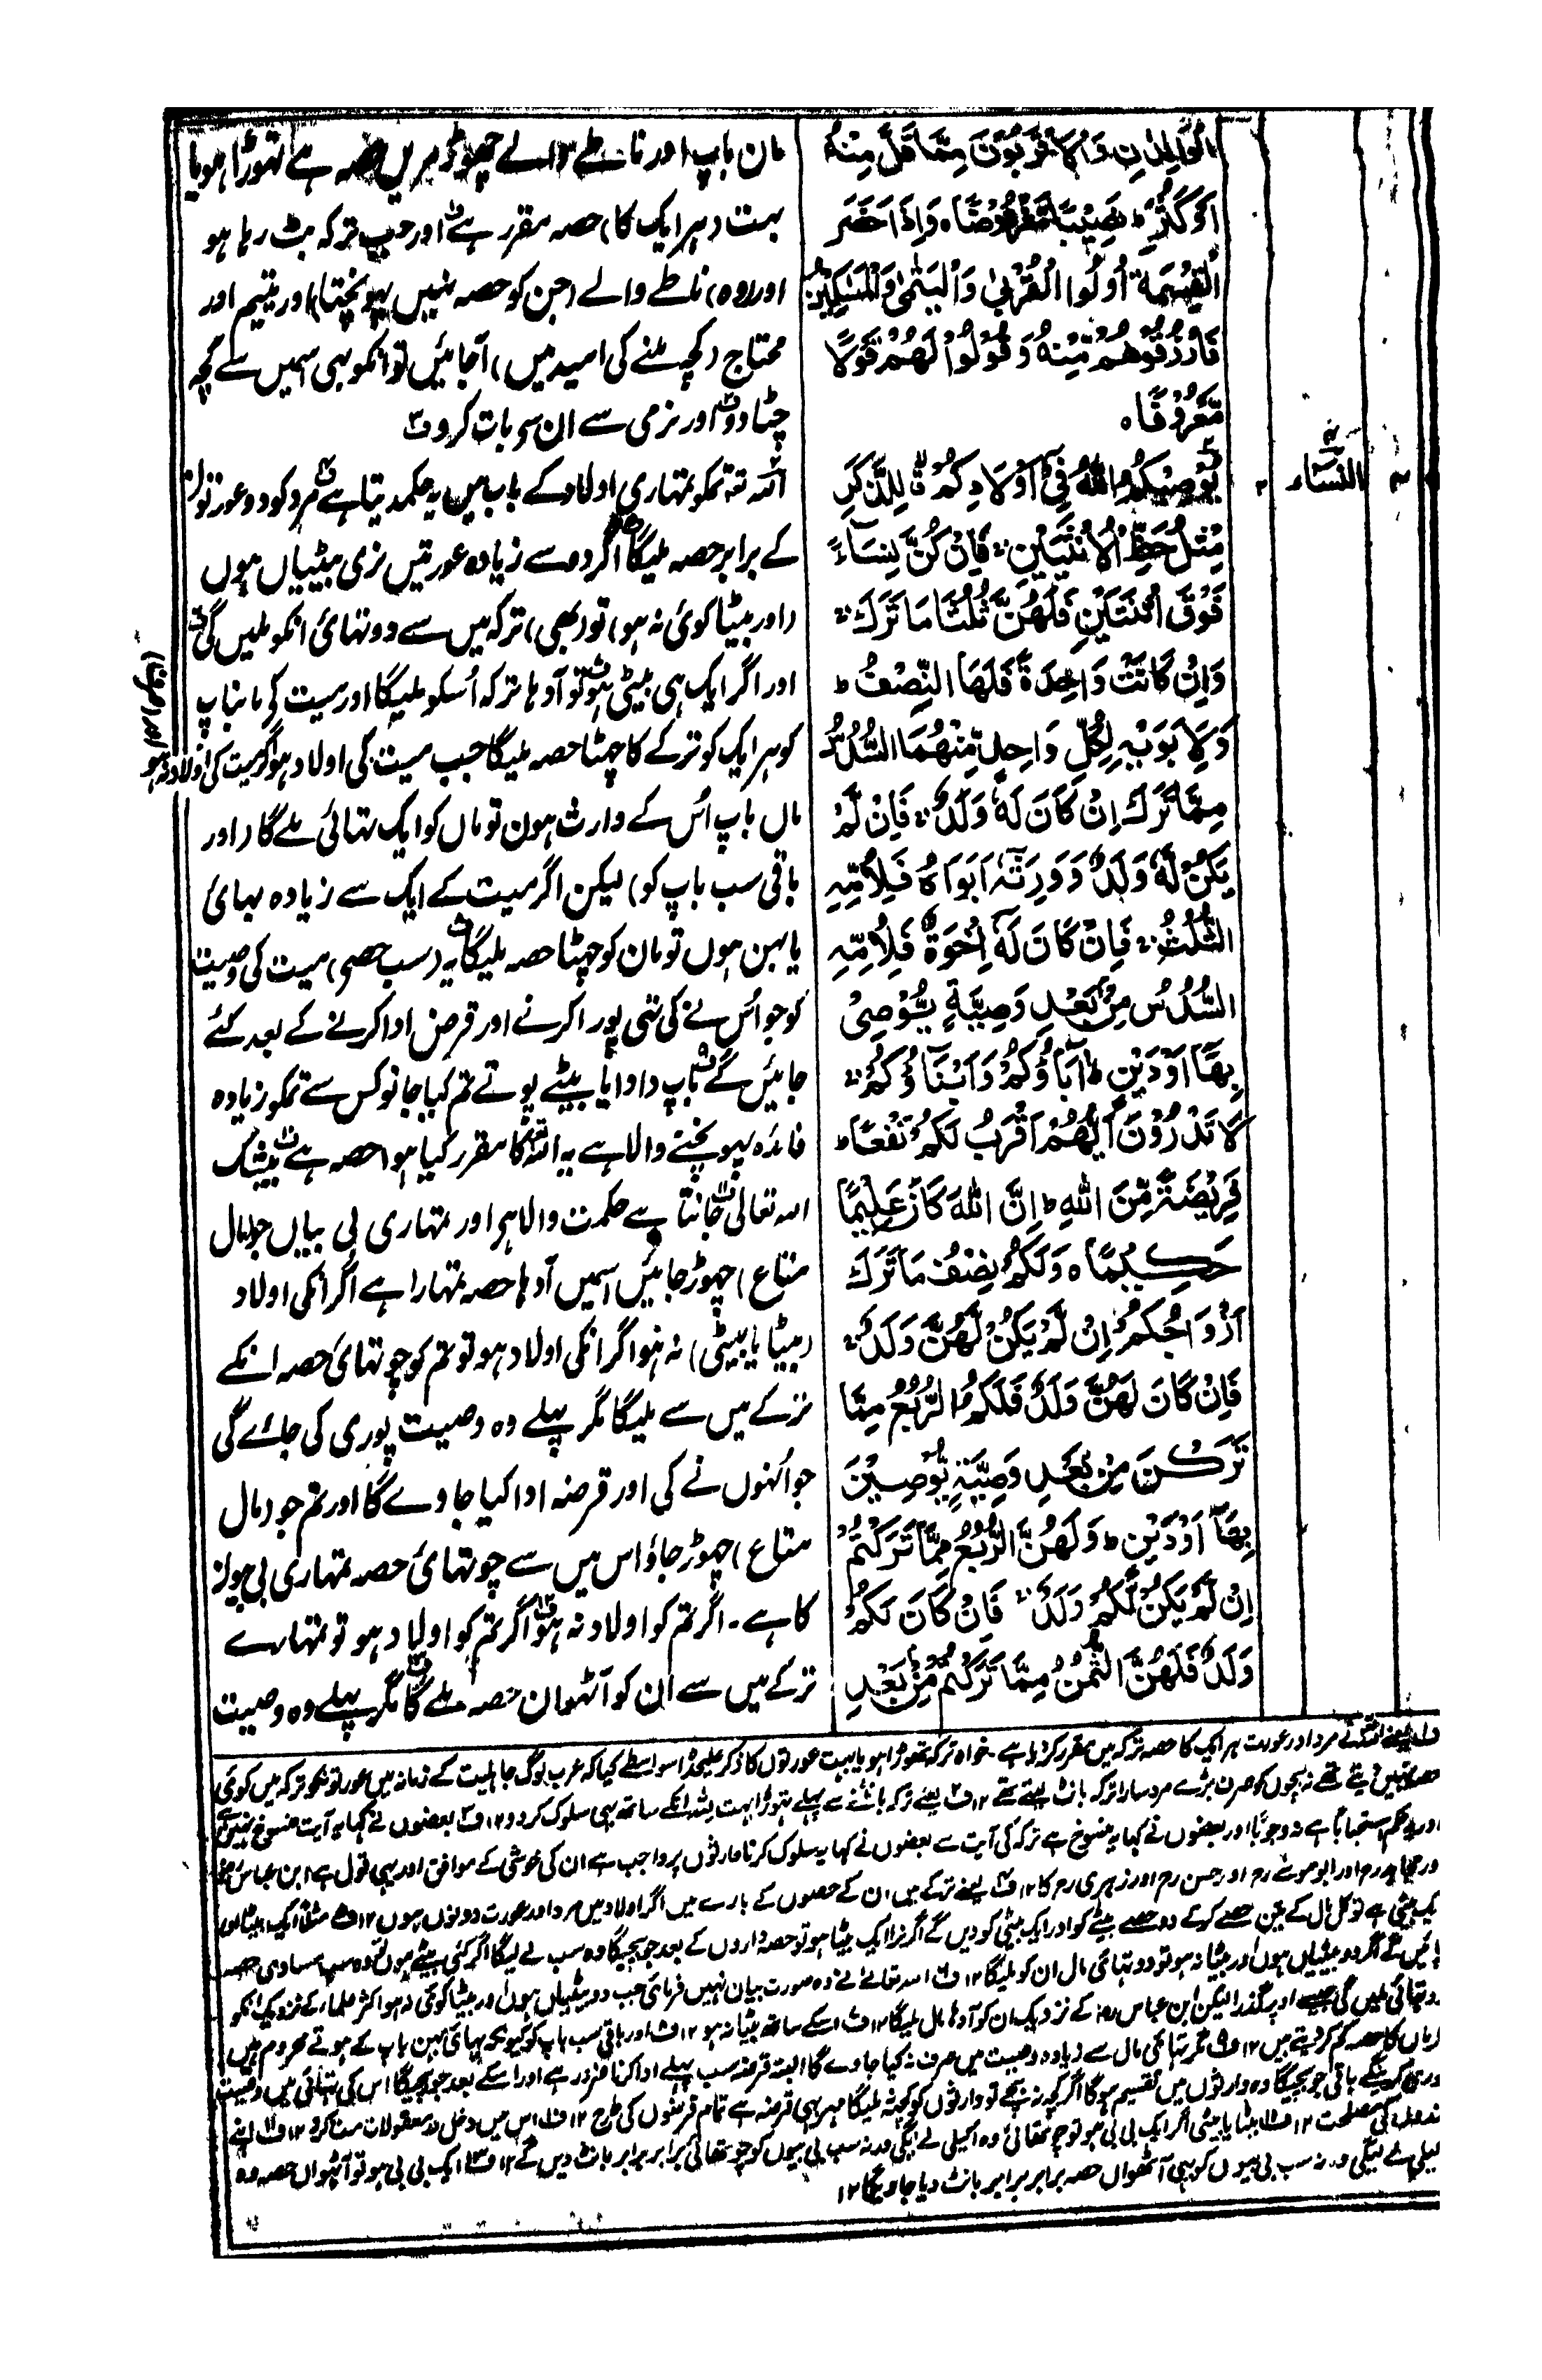 الْوَالِدٰنِ وَالْاَقْرَبُوْنَ مِمَّا قَلَّ مِنْهُ
اَوْ كَثُرَ ؕ نَصِيْبًا مَّفْرُوْضًا ہ وَاِذَا حَضَرَ
الْقِسْمَةَ اُولُوا الْقُرْبٰى وَالْيَتٰمٰى وَالْمَسٰكِيْنُ
فَارْزُقُوْهُمْ مِّنْهُ وَقُوْلُوْا لَهُمْ قَوْلًا
مَّعْرُوْفًا ہ
يُوْصِيْكُمُ اللّٰهُ فِيْٓ اَوْلَادِكُمْ ق لِلذَّكَرِ
مِثْلُ حَظِّ الْاُنْثَيَيْنِ ۚ فَاِنْ كُنَّ نِسَآءً
فَوْقَ اثْنَتَيْنِ فَلَهُنَّ ثُلُثَا مَا تَرَكَ ۚ
وَاِنْ كَانَتْ وَاحِدَةً فَلَهَا النِّصْفُ ؕ
وَلِاَبَوَيْهِ لِكُلِّ وَاحِدٍ مِّنْهُمَا السُّدُسُ
مِمَّا تَرَكَ اِنْ كَانَ لَهٗ وَلَدٌ ۚ فَاِنْ لَّمْ
يَكُنْ لَّهٗ وَلَدٌ وَّوَرِثَهٗٓ اَبَوَاهُ فَلِاُمِّهِ
الثُّلُثُ ۚ فَاِنْ كَانَ لَهٗٓ اِخْوَةٌ فَلِاُمِّهِ
السُّدُسُ مِنْۢ بَعْدِ وَصِيَّةٍ يُّوْصِيْ
بِهَآ اَوْ دَيْنٍ ؕ اٰبَآؤُكُمْ وَاَبْنَآؤُكُمْ ۚ
لَا تَدْرُوْنَ اَيُّهُمْ اَقْرَبُ لَكُمْ نَفْعًا ؕ
فَرِيْضَةً مِّنَ اللّٰهِ ؕ اِنَّ اللّٰهَ كَانَ عَلِيْمًا
حَكِيْمًا ہ وَلَكُمْ نِصْفُ مَا تَرَكَ
اَزْوَاجُكُمْ اِنْ لَّمْ يَكُنْ لَّهُنَّ وَلَدٌ ۚ
فَاِنْ كَانَ لَهُنَّ وَلَدٌ فَلَكُمُ الرُّبُعُ مِمَّا
تَرَكْنَ مِنْۢ بَعْدِ وَصِيَّةٍ يُّوْصِيْنَ
بِهَآ اَوْ دَيْنٍ ؕ وَلَهُنَّ الرُّبُعُ مِمَّا تَرَكْتُمْ
اِنْ لَّمْ يَكُنْ لَّكُمْ وَلَدٌ ۚ فَاِنْ كَانَ لَكُمْ
وَلَدٌ فَلَهُنَّ الثُّمُنُ مِمَّا تَرَكْتُمْ مِّنْۢ بَعْدِ
مان باپ اور ناطے والے چھوڑ مریں حصہ ہے تہوڑا ہو یا
بہت (ہر ایک کا) حصہ مقرر ہے اور جب ترکہ بٹ رہا ہو
اور (وہ) ناطے والے (جن کو حصہ نہیں پہونچتا) اور یتیم اور
محتاج (کچھ ملنے کی امید میں) آجائیں تو انکو بہی اسمیں سے کچھ
چٹا دو اور نرمی سے ان سے بات کرو
اللہ تعہ تمکو تمہاری اولاد کے باب میں یہ حکم دیتا ہے مرد کو دو عورتوں
کے برابر حصہ ملیگا اگر دو سے زیادہ عورتیں نری بیٹیاں ہوں
(اور بیٹا کوئی نہ ہو) تو (بھی) ترکہ میں سے دو تہائی انکو ملیں گی
اور اگر ایک ہی بیٹی ہو تو آدہا ترکہ اُسکو ملیگا اور میت کی مانباپ
کو ہر ایک کو ترکے کا چہٹا حصہ ملیگا جب میت کی اولاد ہو اگر میت کی اولاد نہ ہو
اور (صرف)
ماں باپ اُس کے وارث ہون تو ماں کو ایک تہائی ملے گا (اور
باقی سب باپ کو) لیکن اگر میت کے ایک سے زیادہ بہائی
یا بہن ہوں تو مان کو چہٹا حصہ ملیگا یہ (سب حصے) میت کی وصیت
کو جو اُس نے کی تہی پورا کرنے اور قرض ادا کرنے کے بعد کئے
جائیں گے باپ دادا یا بیٹے پوتے تم کیا جانو کس سے تمکو زیادہ
فائدہ پہونچنے والا ہے یہ اللہ کا مقرر کیا ہوا حصہ ہے بیشک
اللہ تعالیٰ جانتا ہے حکمت والا ہر اور تمہاری بی بیاں جو (مال
متاع) چہوڑ جائیں اسمیں آدہا حصہ تمہارا ہے اگر انکی اولاد
(بیٹا یا بیٹی) نہ ہو اگر انکی اولاد ہو تو تم کو چوتہائی حصہ انکے
ترکے میں سے ملیگا مگر پہلے وہ وصیت پوری کی جائے گی
جو اُنہوں نے کی اور قرضہ ادا کیا جاوے گا اور تم جو (مال
متاع) چہوڑ جاؤ اس میں سے چوتہائی حصہ تمہاری بی بیوں
کا ہے ۔ اگر تم کو اولاد نہ ہو اگر تم کو اولاد ہو تو تمہارے
ترکے میں سے ان کو آٹہوان حصہ ملے گا مگر پہلے وہ وصیت
النساء ۴
مرد اور عورت ہر ایک کا حصہ ترکہ میں مقرر کر دیا ہے ۔ خواہ ترکہ تھوڑا ہو یا بہت عورتوں کا ذکر علیحدہ اسواسطے کیا کہ عرب لوگ جاہلیت کے زمانہ میں عورتونکو ترکہ میں کوئی
حصہ نہیں دیتے تھے نہ بچوں کو صرف بڑے مرد سارا ترکہ بانٹ لیتے تھے ۱۲ ف۲ یعنے ترکہ بانٹنے سے پہلے تہوڑا بہت للہ انکے ساتھ بہی سلوک کر دو ۱۲ ف۳ بعضوں نے کہا یہ آیت منسوخ نہیں ہے
اور یہ حکم استحباباً ہے نہ وجوباً اور بعضوں نے کہا یہ منسوخ ہے ترکہ کی آیت سے بعضوں نے کہا یہ سلوک کرنا وارثوں پر واجب ہے ان کی خوشی کے موافق اور یہی قول ہے ابن عباس
ور مجاہد رم اور ابو موسے رم اور حسن رم اور زہری رم کا ۱۲ ف۴ یعنے ترکے میں ان کے حصوں کے بارے میں اگر اولاد میں مرد اور عورت دونوں ہوں ۱۲ ف۵ مثلاً ایک بیٹا اور
یک بیٹی ہے تو کل مال کے تین حصے کر کے دو حصے بیٹے کو اور ایک بیٹی کو دیں گے اگر نرا ایک بیٹا ہو تو حصہ داروں کے بعد جو بچیگا وہ سب لے لیگا اگر کئی بیٹے ہوں تو وہ سب مساوی حصہ
پائیں گے اگر دو بیٹیاں ہوں اور بیٹا نہ ہو تو دو تہائی مال ان کو ملیگا ۱۲ ف۶ اللہ تعالے نے وہ صورت بیان نہیں فرمائی جب دو بیٹیاں ہوں اور بیٹا کوئی نہ ہو اکثر علماء کے نزدیک انکو
دو تہائی ملیں گی جیسے اوپر گذرا لیکن ابن عباس کے نزدیک ان کو آدہا مال ملیگا ۱۲ ف۷ اسکے ساتھ بیٹا نہ ہو ۱۲ ف۸ اور باقی سب باپ کو کیونکہ بہائی بہن باپ کے ہوتے محروم ہیں
ماں کا حصہ کم کر دیتے ہیں ۱۲ ف۹ مگر تہائی مال سے زیادہ وصیت میں صرف نہ کیا جاوے گا البتہ قرضہ سب پہلے ادا کرنا ضرور ہے اور اسکے بعد جو بچیگا اس کی تہائی میں وصیت
پوری کرینگے باقی جو بچیگا وہ وارثوں میں تقسیم ہوگا اگر کچھ نہ بچے تو وارثوں کو کچھ نہ ملیگا مہر بہی قرضہ ہے تمام قرضوں کی طرح ۱۲ ف۱۰ اس میں دخل در معقولات مت کرو ۱۲ ف۱۱ اپنے
بندوں کی مصلحت ۱۲ ف۱۲ بیٹا یا بیٹی اگر ایک بی بی ہو تو چوتھائی وہ اکیلی لے لیگی ورنہ سب بی بیوں کو چوتھائی برابر برابر بانٹ دیں گے ۱۲ ف۱۳ ایک بی بی ہو تو آٹہواں حصہ وہ
اکیلی لے لیگی ورنہ سب بی بیوں کو بہی آٹھواں حصہ برابر برابر بانٹ دیا جاویگا ۱۲